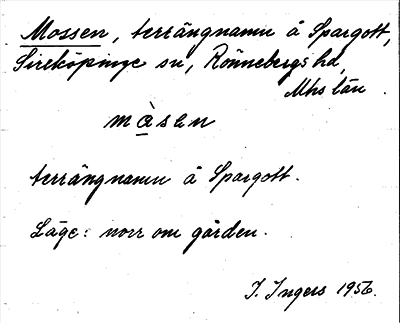 Mossen, terrängnamn å Spargott,
Sireköpinge sn, Rönnebergs hd,
Mhs län.
mà̱sen
terrängnamn å Spargott.
Läge: norr om gården.
I. Ingers 1956.